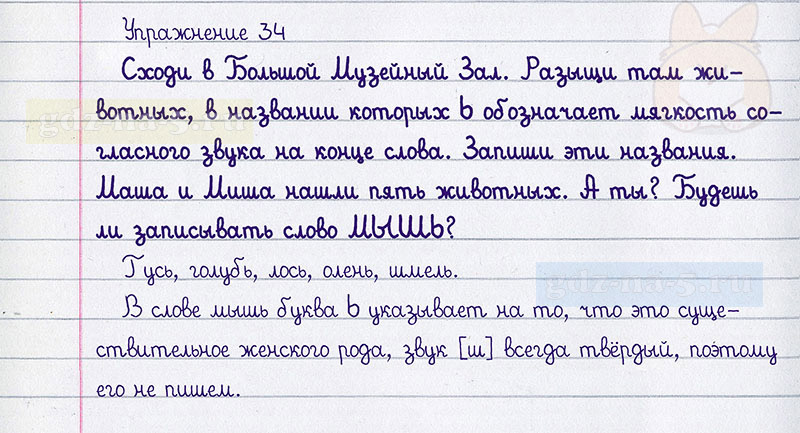 Упражнение 34
Сходи в Большой Музейный Зал. Разыщи там жи-
вотных, в названии которых ь обозначает мягкость со-
гласного звука на конце слова. Запиши эти названия.
Маша и Миша нашли пять животных. А ты? Будешь
ли записывать слово МЫШЬ?
Гусь, голубь, лось, олень, шмель.
В слове мышь буква ь указывает на то, что это суще-
ствительное женского рода, звук [ш] всегда твёрдый, поэтому
его не пишем.
gdz-na-5.ru
gdz-na-5.ru